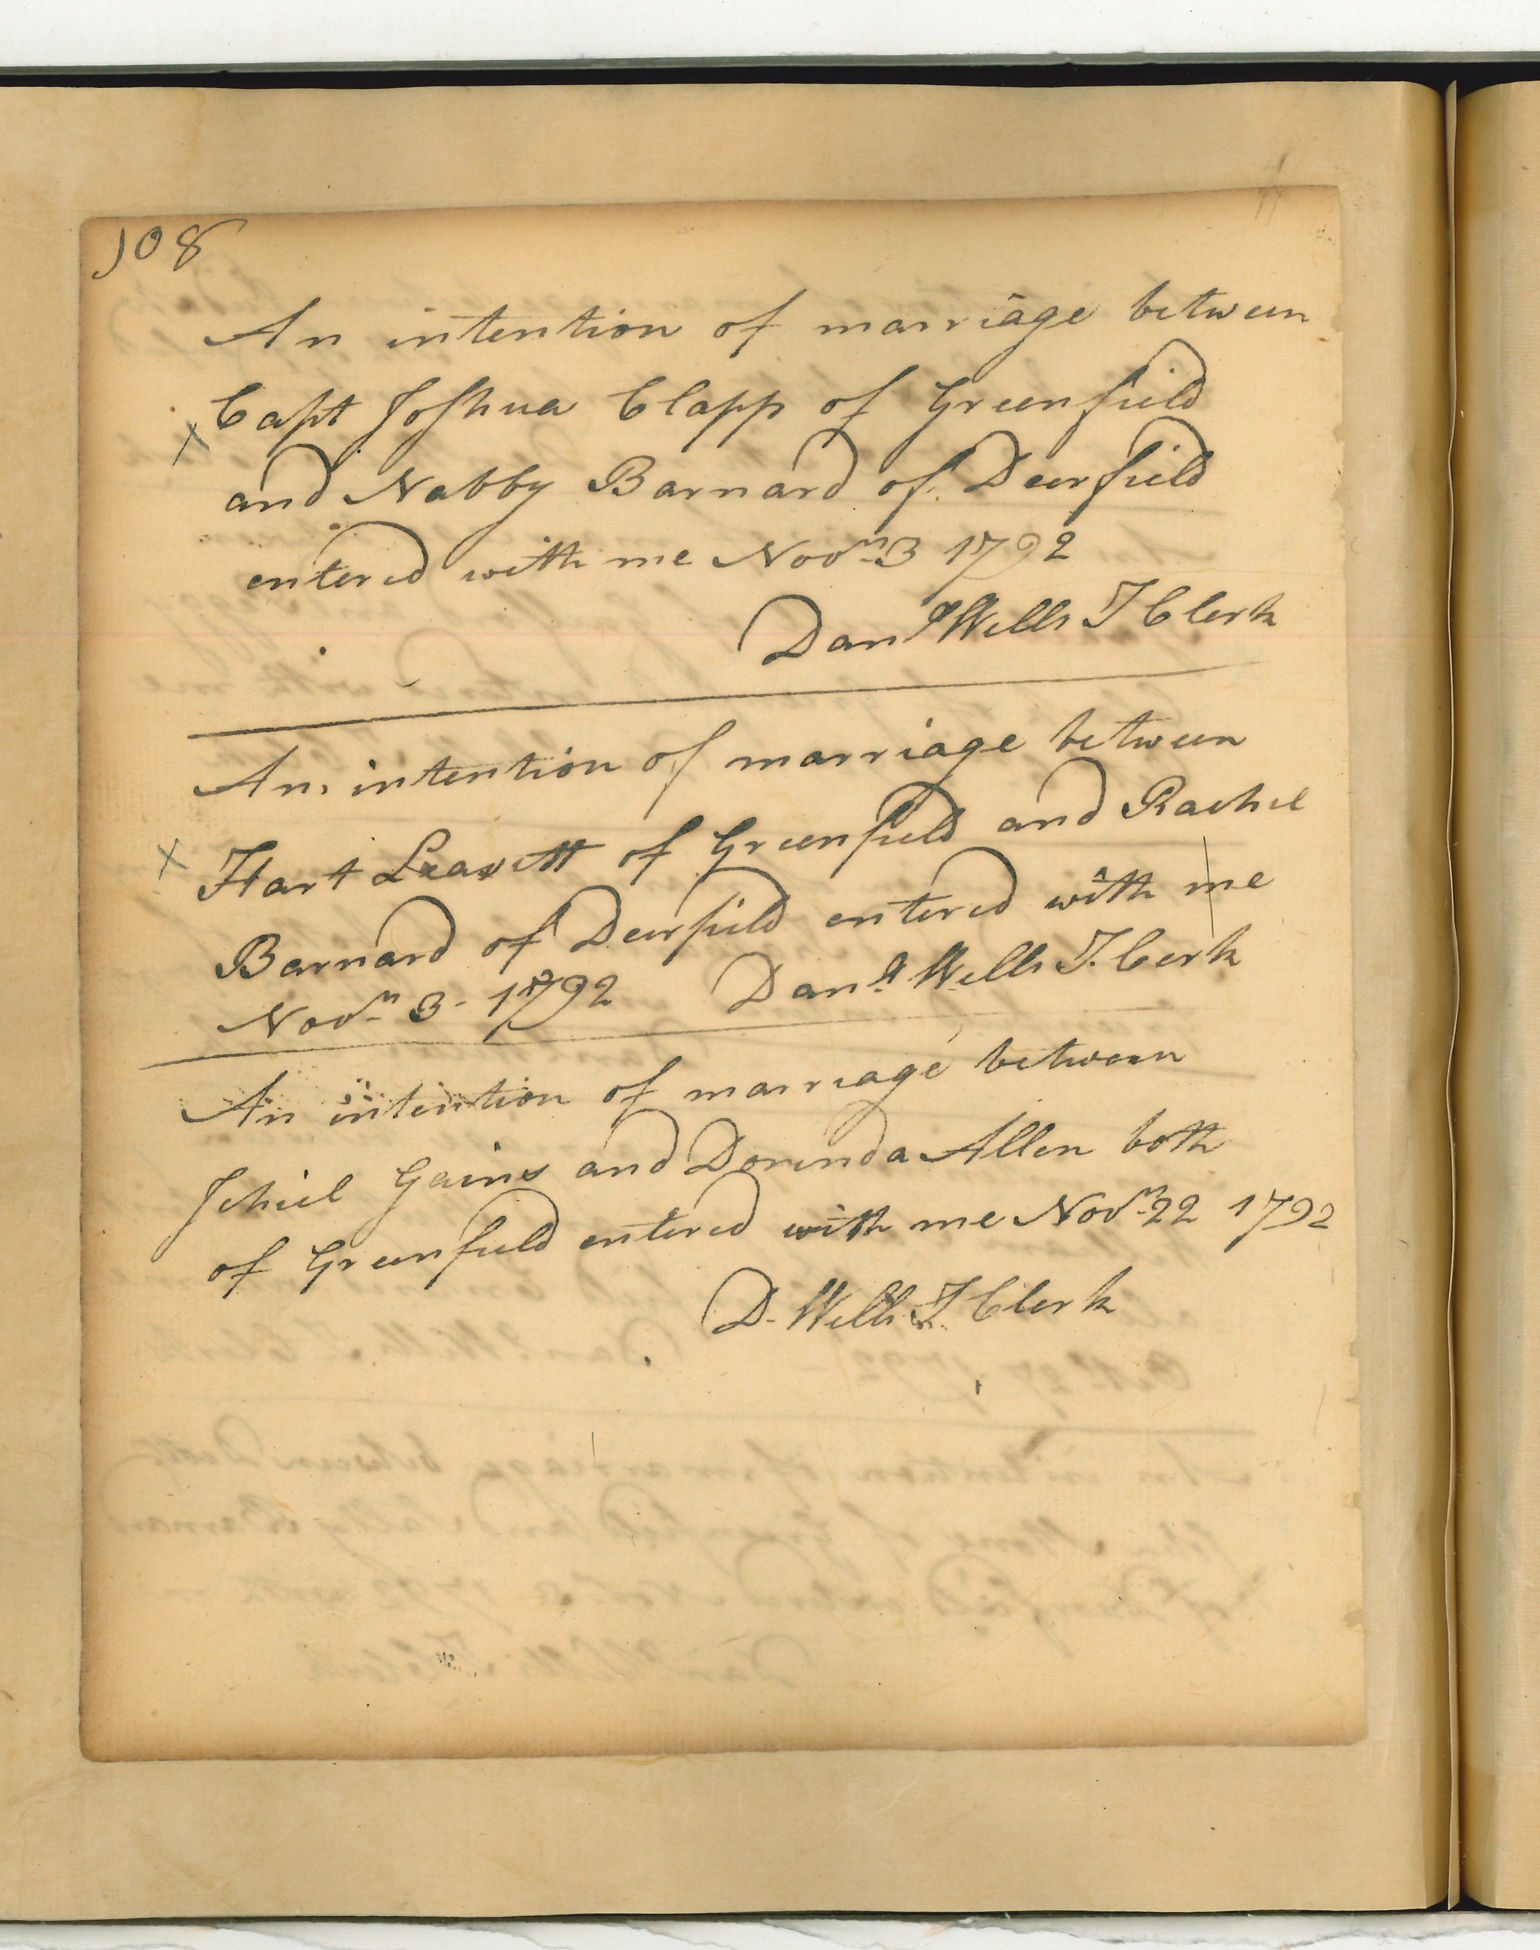 108
An intention of marriage between
x Capt Joshua Clapp of Greenfield
and Nabby Barnard of Deerfield
entered with me Novm 3 1792
Danl Wells T Clerk
An intention of marriage between
x Hart Leavitt of Greenfield and Rachel
Barnard of Deerfield entered with me
Novm 3 - 1792 Danl Wells T. Cerk
An intention of marriage between
Jehiel Gains and Dorinda Allen both
of Greenfield entered with me Novm 22 1792
D. Wells T. Clerk